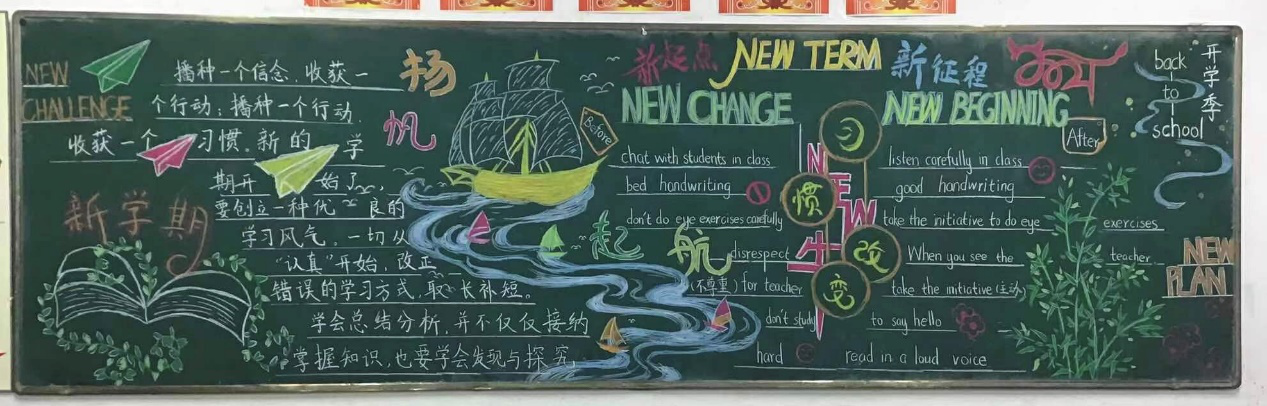 NEW
CHALLENGE
播种一个信念,收获一
个行动;播种一个行动,
收获一个习惯。新的学
期开始了,
要创立一种优良的
学习风气。一切从
“认真”开始,改正
错误的学习方式,取长补短。
学会总结分析,并不仅仅接纳
掌握知识,也要学会发现与探究。
新学期
扬
帆
起
航
新起点
NEW TERM
新征程
NEW CHANGE
NEW BEGINNING
Before
chat with students in class
bed handwriting
don't do eye exercises carefully
disrespect
(不尊重) for teacher
don't study
hard
NEW
牛
惯
改
变
After
listen carefully in class
good handwriting
take the initiative to do eye exercises
When you see the teacher
take the initiative (主动)
to say hello
read in a loud voice
back
to
school
开学季
NEW
PLAN